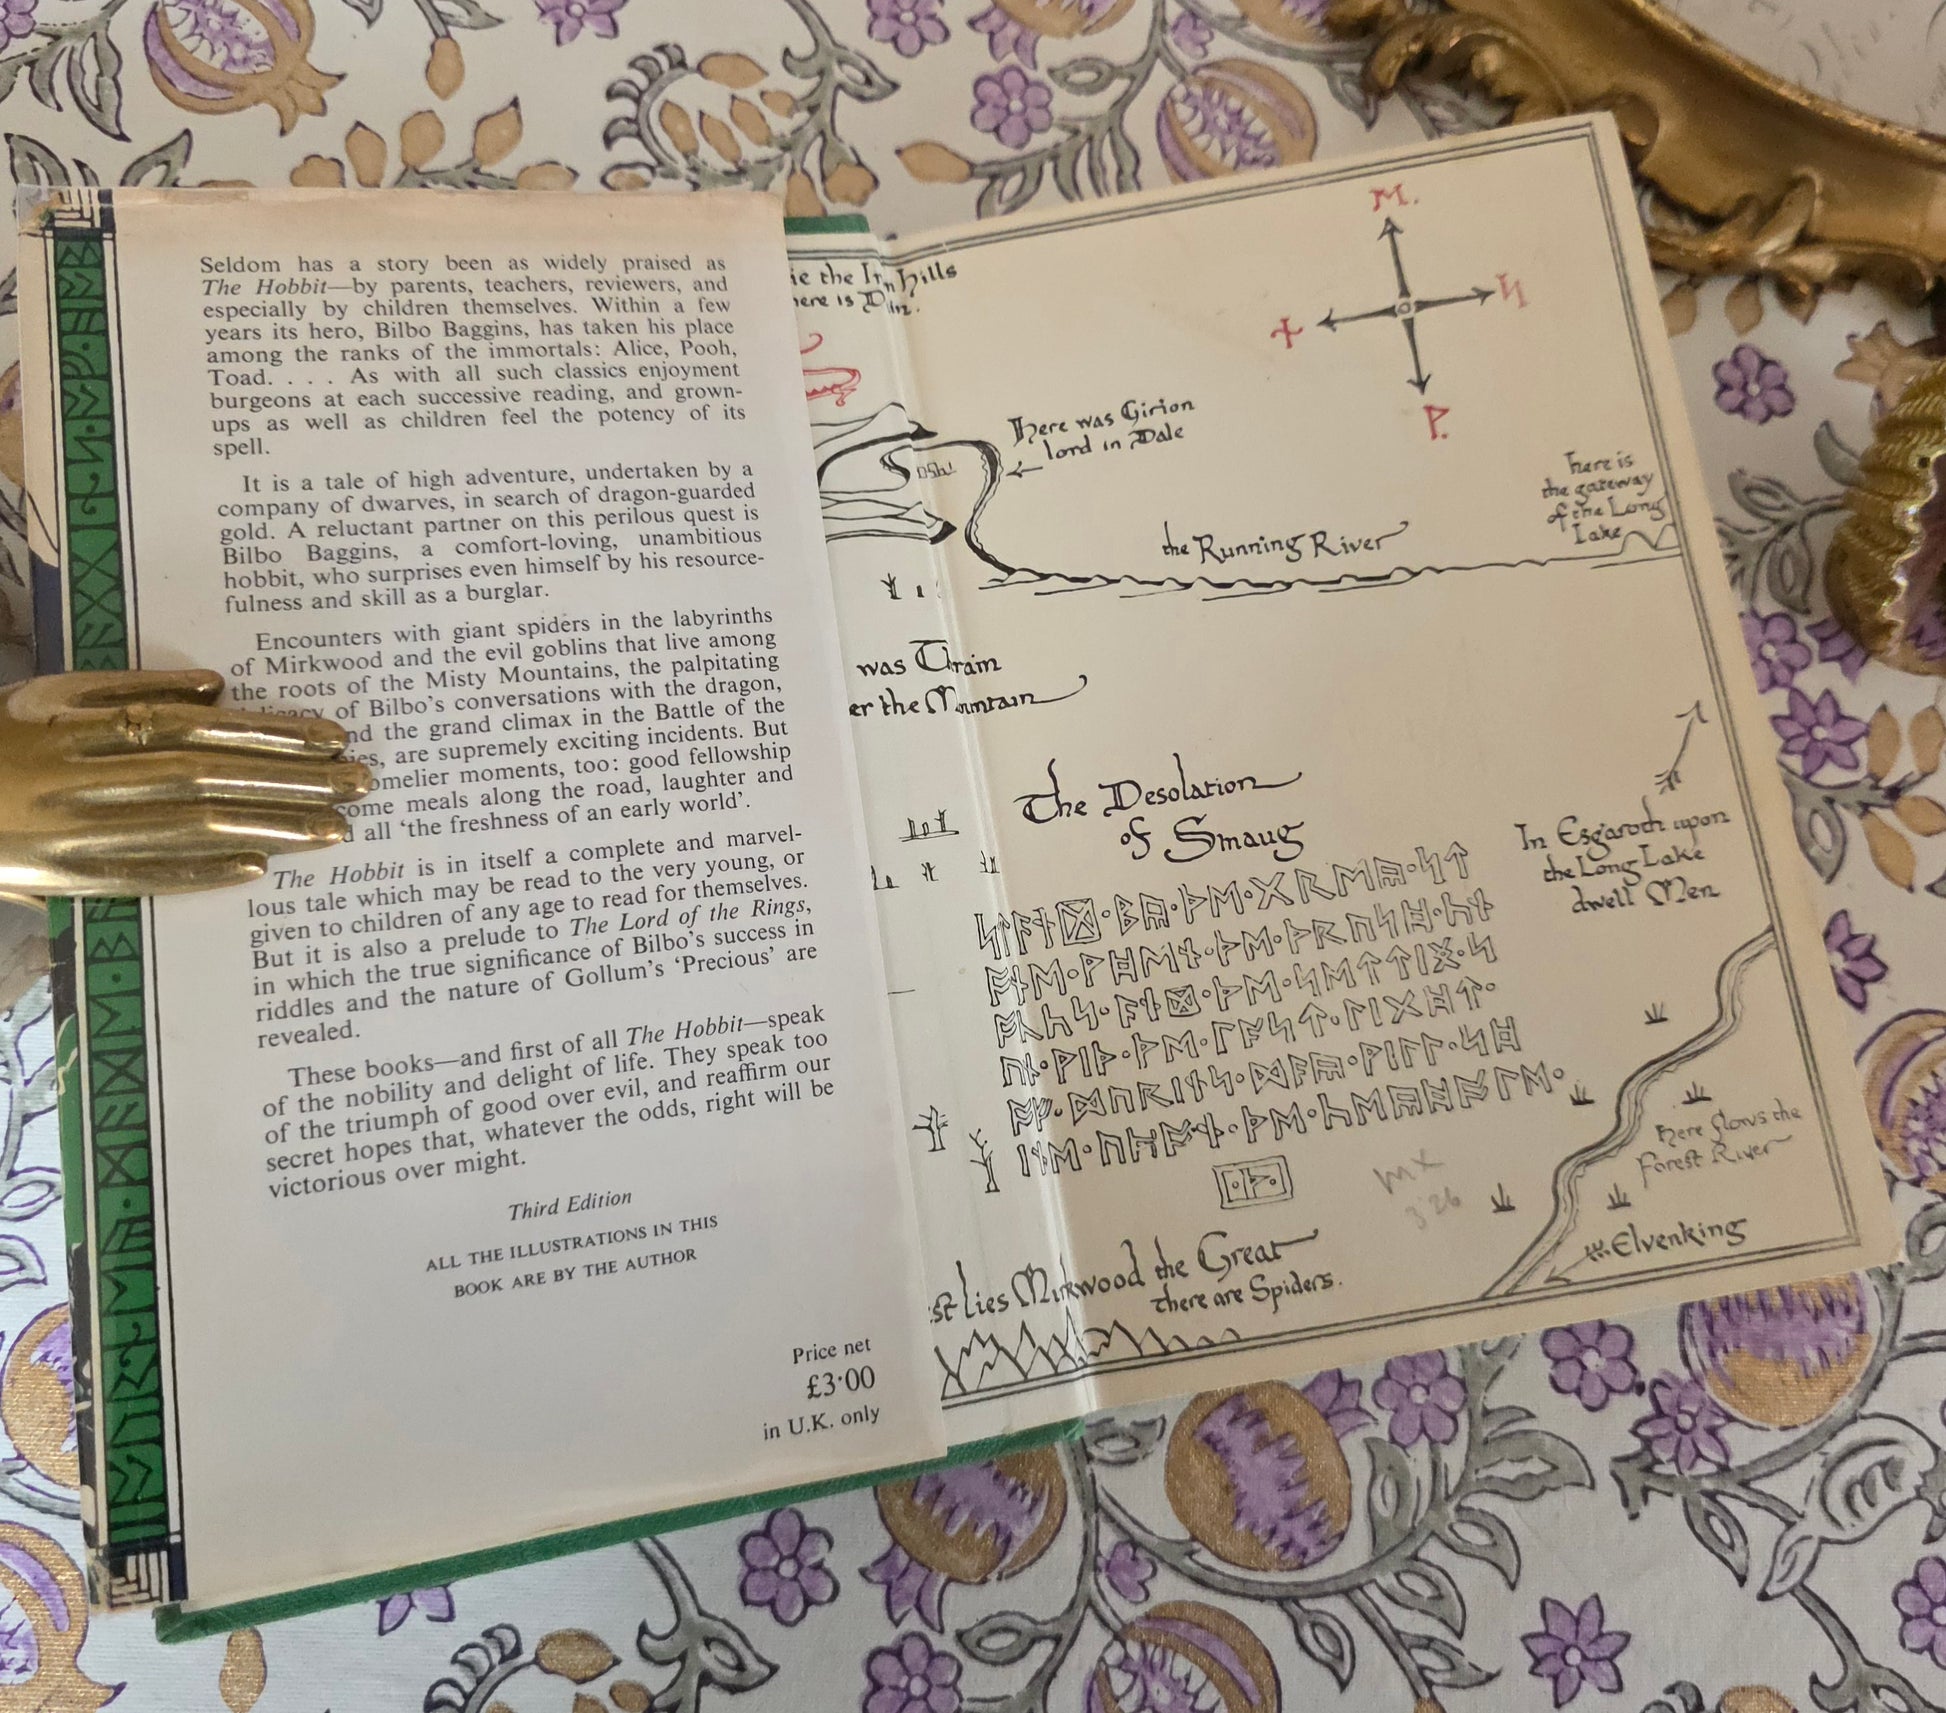 Seldom has a story been as widely praised as
The Hobbit—by parents, teachers, reviewers, and
especially by children themselves. Within a few
years its hero, Bilbo Baggins, has taken his place
among the ranks of the immortals: Alice, Pooh,
Toad. . . . As with all such classics enjoyment
burgeons at each successive reading, and grown-
ups as well as children feel the potency of its
spell.
It is a tale of high adventure, undertaken by a
company of dwarves, in search of dragon-guarded
gold. A reluctant partner on this perilous quest is
Bilbo Baggins, a comfort-loving, unambitious
hobbit, who surprises even himself by his resource-
fulness and skill as a burglar.
Encounters with giant spiders in the labyrinths
of Mirkwood and the evil goblins that live among
the roots of the Misty Mountains, the palpitating
of Bilbo's conversations with the dragon,
nd the grand climax in the Battle of the
ies, are supremely exciting incidents. But
omelier moments, too: good fellowship
come meals along the road, laughter and
all 'the freshness of an early world'.
The Hobbit is in itself a complete and marvel-
lous tale which may be read to the very young, or
given to children of any age to read for themselves.
But it is also a prelude to The Lord of the Rings,
in which the true significance of Bilbo's success in
riddles and the nature of Gollum's 'Precious' are
revealed.
These books—and first of all The Hobbit—speak
of the nobility and delight of life. They speak too
of the triumph of good over evil, and reaffirm our
secret hopes that, whatever the odds, right will be
victorious over might.
Third Edition
ALL THE ILLUSTRATIONS IN THIS
BOOK ARE BY THE AUTHOR
Price net
£3·00
in U.K. only
ie the Iron Hills
here is Dain.
Here was Girion
lord in Dale
the Running River
here is
the gateway
of the Long
Lake
was Thrain
er the Mountain
The Desolation
of Smaug
ᛋᛏᚪᚾᛞ᛫ᛒᚣ᛫ᚦᛖ᛫ᚷᚱᛖᚣ᛫ᛋᛏ
ᚩᚾᛖ᛫ᚹᚻᛖᚾ᛫ᚦᛖ᛫ᚦᚱᚢᛋᚻ᛫ᚳᚾ
ᚩᚳᚳᛋ᛫ᚪᚾᛞ᛫ᚦᛖ᛫ᛋᛖᛏᛏᛁᛝ᛫ᛋ
ᚢᚾ᛫ᚹᛁᚦ᛫ᚦᛖ᛫ᛚᚪᛋᛏ᛫ᛚᛁᚷᚻᛏ᛫
ᚩᚠ᛫ᛞᚢᚱᛁᚾᛋ᛫ᛞᚪᚣ᛫ᚹᛁᛚᛚ᛫ᛋᚻ
ᛁᚾᛖ᛫ᚢᛈᚩᚾ᛫ᚦᛖ᛫ᚳᛖᚣᚻᚩᛚᛖ᛫
᛫ᚦ᛫
In Esgaroth upon
the Long Lake
dwell Men
here flows the
Forest River
Elvenking
st lies Mirkwood the Great
there are Spiders.